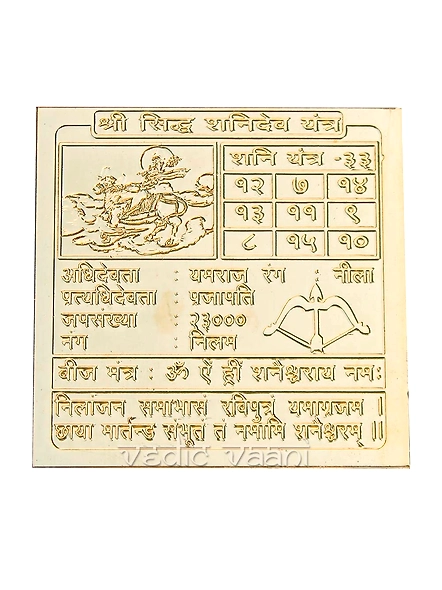 श्री सिद्ध शनिदेव यंत्र
शनि यंत्र -३३
१२ ७ १४
१३ ११ ९
८ १५ १०
अधिदेवता : यमराज रंग : नीला
प्रत्यधिदेवता : प्रजापति
जपसंख्या : २३०००
नंग : निलम
बीज मंत्र : ॐ ऐं ह्रीं शनैश्चराय नमः
निलांजन समाभासं रविपुत्रं यमाग्रजम ।
छाया मार्तन्ड संभूत तं नमामि शनैश्चरम् ॥
vedic vaani